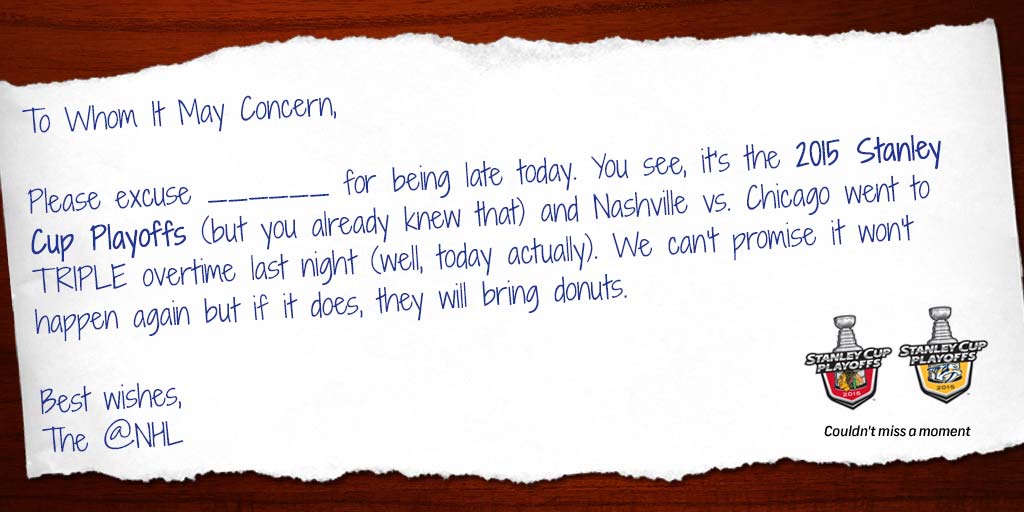 To Whom It May Concern,
Please excuse ______ for being late today. You see, it's the 2015 Stanley
Cup Playoffs (but you already knew that) and Nashville vs. Chicago went to
TRIPLE overtime last night (well, today actually). We can't promise it won't
happen again but if it does, they will bring donuts.
Best wishes,
The @NHL
STANLEY CUP
PLAYOFFS
2015
STANLEY CUP
PLAYOFFS
2015
Couldn't miss a moment